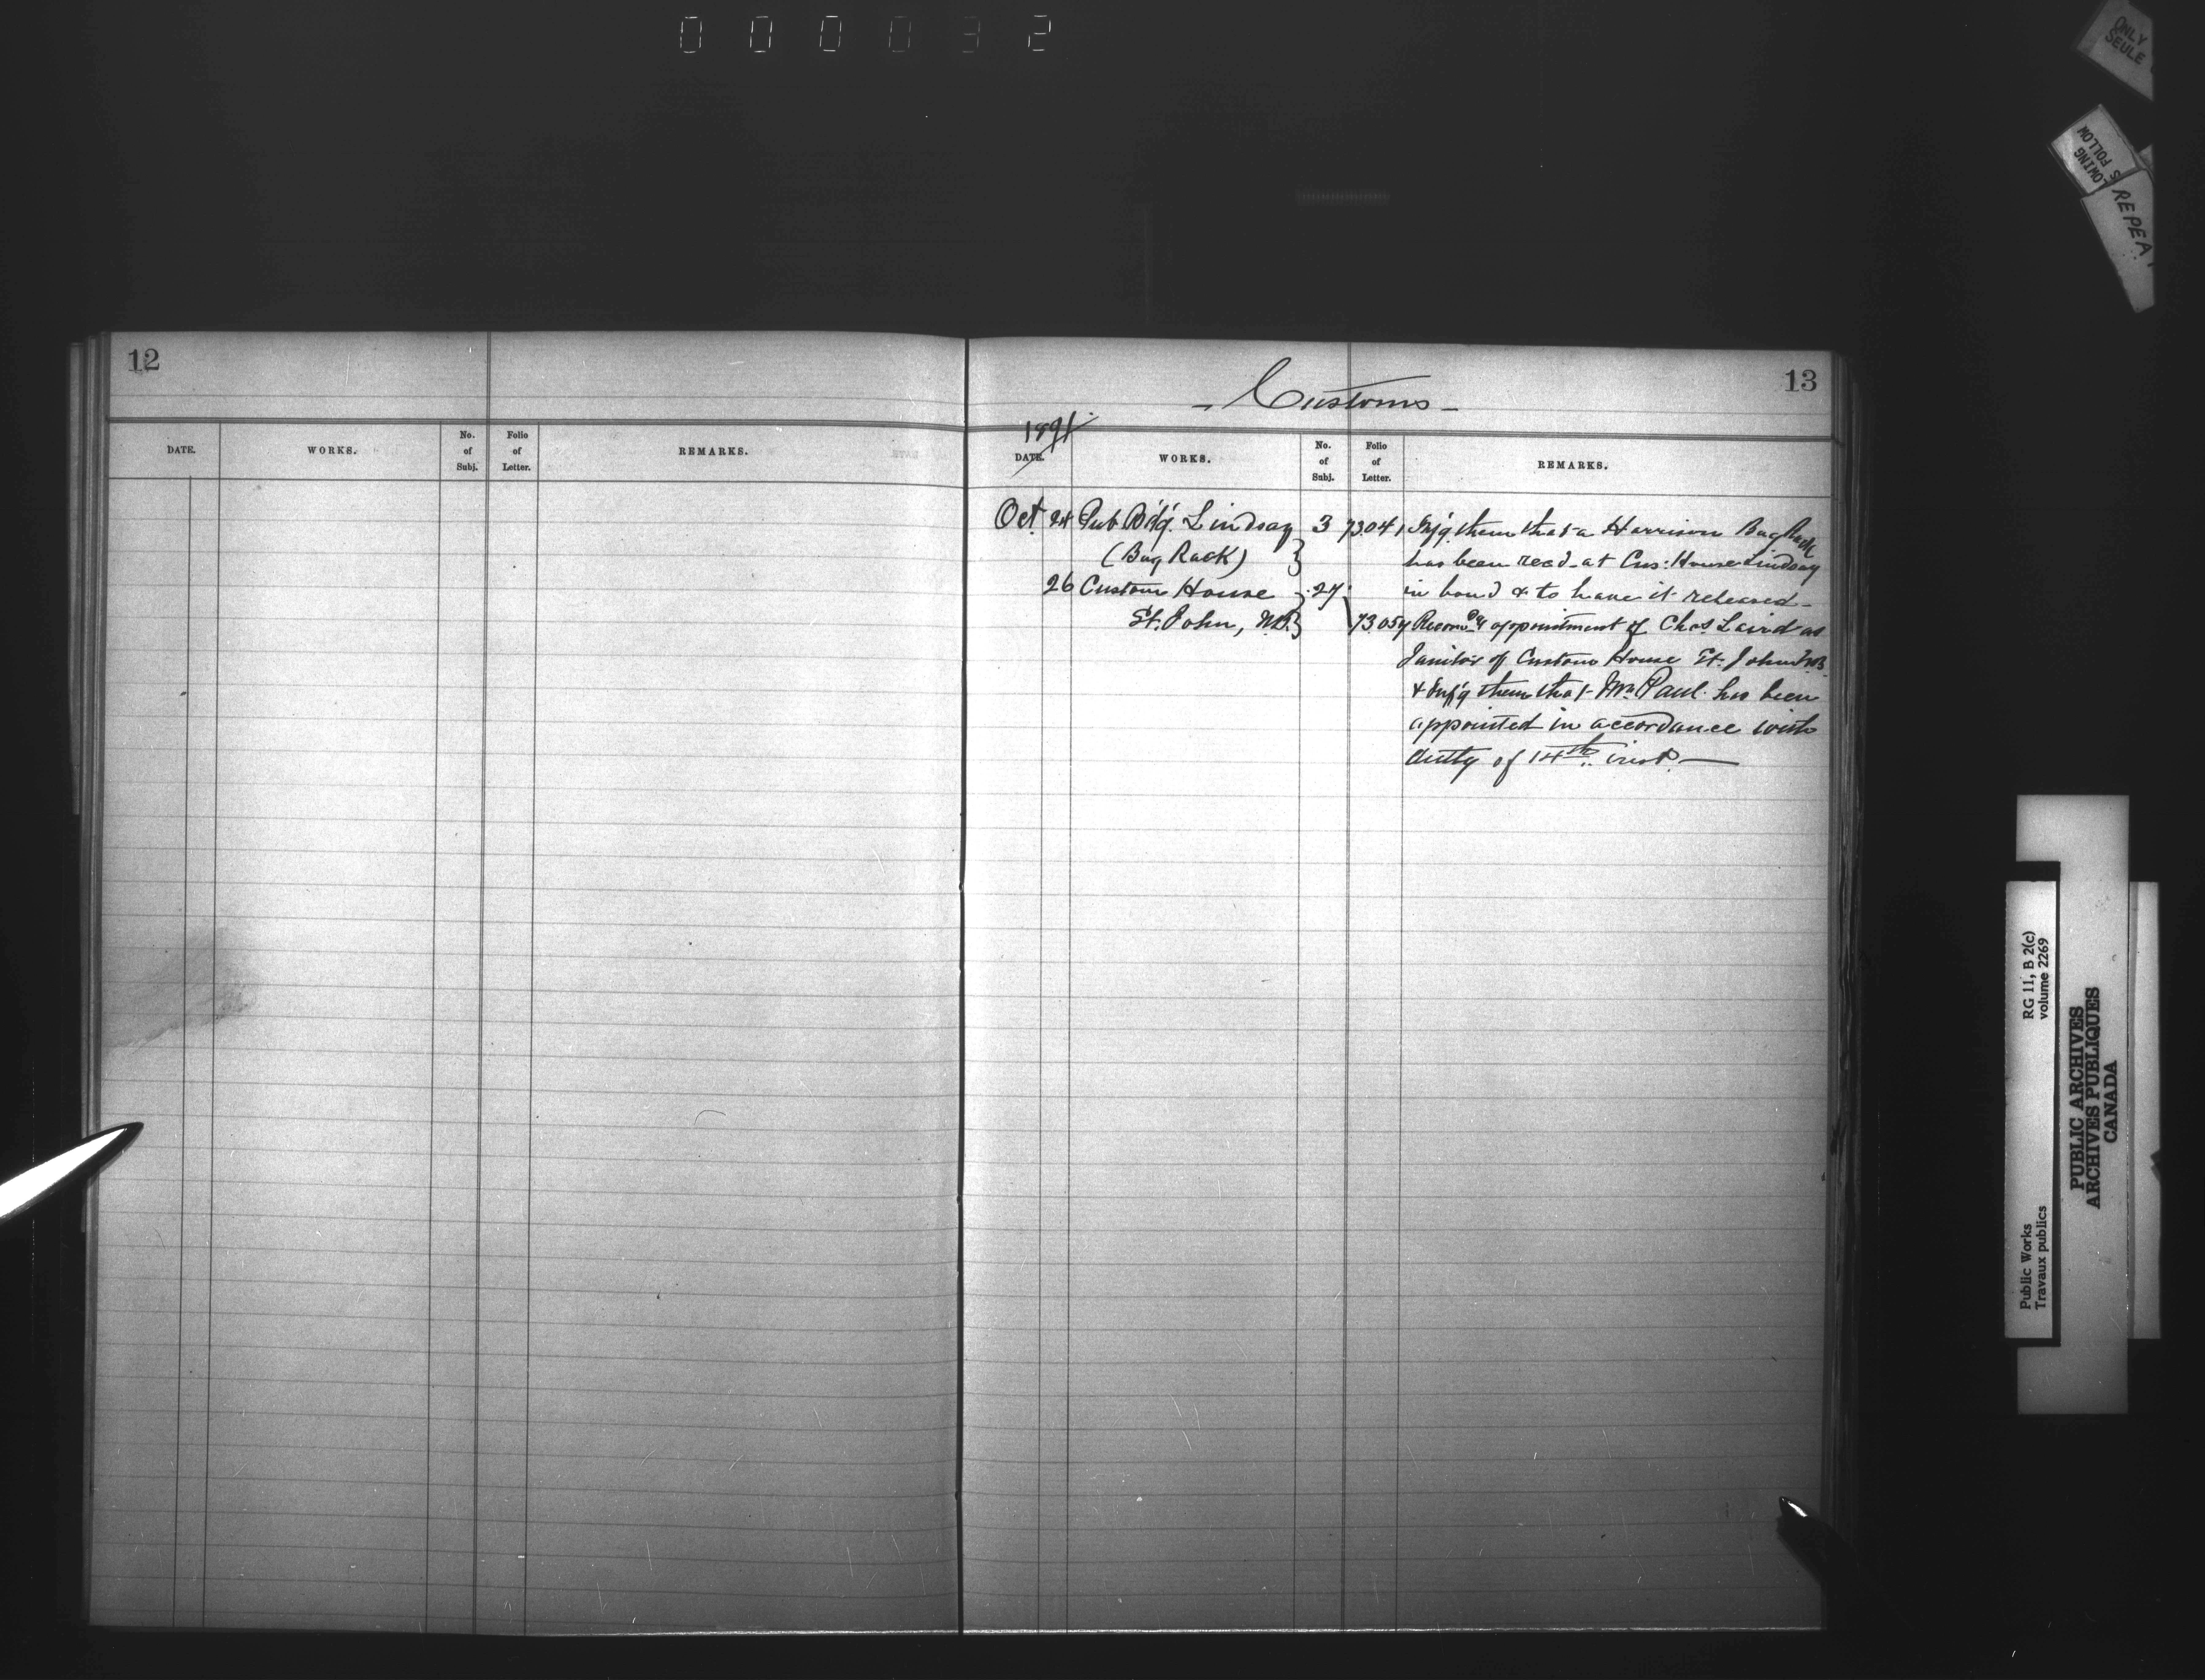 0 0 0 0 3 2
ONLY
SEULE
LOWING
S FOLLOW
REPEA
12
DATE. WORKS. No. of Subj. Folio of Letter. REMARKS.
13
- Customs -
1891
DATE. WORKS. No. of Subj. Folio of Letter. REMARKS.
Oct 24 Pub Bd'g'. Lindsay 3 73041 Inf'g them that a Harrison Bag Rack
(Bag Rack) } has been recd at Cus: House Lindsay
26 Custom House } 27 in bond & to have it released -
St. John, NB. } 73054 appointment of Chas Laird as
Janitor of Custom House St. John NB
& Inf'g them that Mr. Paul has been
appointed in accordance with
of 14th inst. —
RG 11, B 2(c)
volume 2269
Public Works
Travaux publics
PUBLIC ARCHIVES
ARCHIVES PUBLIQUES
CANADA